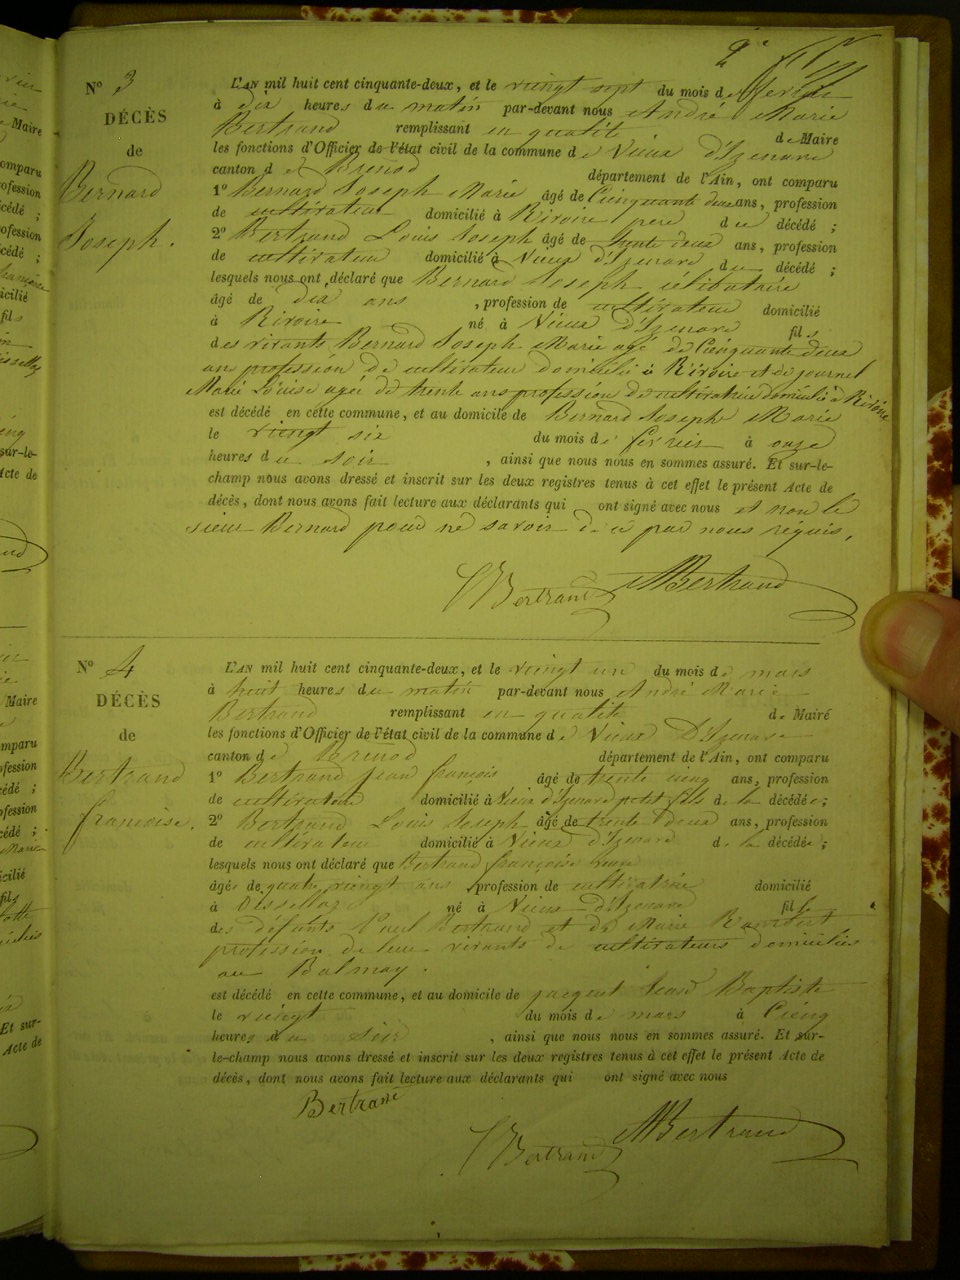 N° 3
DÉCÈS
de
Bernard
Joseph.
L'AN mil huit cent cinquante-deux, et le vingt sept du mois de fevrier
à dix heures du matin par-devant nous André Marie
Bertrand remplissant en qualité de Maire
les fonctions d'Officier de l'état civil de la commune de Vieux d'Izenave
canton de Brenod département de l'Ain, ont comparu
1° Bernard Joseph Marie âgé de Cienquante deux ans, profession
de cultivateur domicilié à Rivoire pere du décédé ;
2° Bertrand Louis Joseph âgé de trente deux ans, profession
de cultivateur domicilié à Vieux d'Izenave du décédé ;
lesquels nous ont déclaré que Bernard Joseph célibataire
âgé de dix ans , profession de cultivateur domicilié
à Rivoire né à Vieux d'Izenave fils
des vivants Bernard Joseph Marie agé de Cienquante deux
ans profession de cultivateur domicilié à Rivoire et de journet
Marie Louise agée de trente ans profession de cultivatrice domiciliée à Rivoire
est décédé en cette commune, et au domicile de Bernard Joseph Marie
le vingt six du mois de fevrier à onze
heures du soir , ainsi que nous nous en sommes assuré. Et sur-le-
champ nous avons dressé et inscrit sur les deux registres tenus à cet effet le présent Acte de
décès, dont nous avons fait lecture aux déclarants qui ont signé avec nous et non le
sieur Bernard pour ne savoir de ce par nous réquis.
Bertrand MBertrand
N° 4
DÉCÈS
de
Bertrand
françoise.
L'AN mil huit cent cinquante-deux, et le vingt un du mois de mars
à huit heures du matin par-devant nous André Marie
Bertrand remplissant en qualité de Maire
les fonctions d'Officier de l'état civil de la commune de Vieux D'Izenave
canton de Brenod département de l'Ain, ont comparu
1° Bertrand Jean françois âgé de trente cienq ans, profession
de cultivateur domicilié à Vieux d'Izenave petit fils de la décédée ;
2° Bertrand Louis Joseph âgé de trente deux ans, profession
de cultivateur domicilié à Vieux d'Izenave de la décédée ;
lesquels nous ont déclaré que Bertrand françoise veuve
âgée de quatre vingt ans profession de cultivatrice domicilié
à né à Vieux d'Izenave fille
des défunts Paul Bertrand et de Marie
profession de leur vivants de cultivateurs domiciliés
au Balmay.
est décédé en cette commune, et au domicile de Baptiste
le vingt du mois de mars à Cienq
heures du soir , ainsi que nous nous en sommes assuré. Et sur-
le-champ nous avons dressé et inscrit sur les deux registres tenus à cet effet le présent Acte de
décès, dont nous avons fait lecture aux déclarants qui ont signé avec nous
Bertrand
Bertrand MBertrand